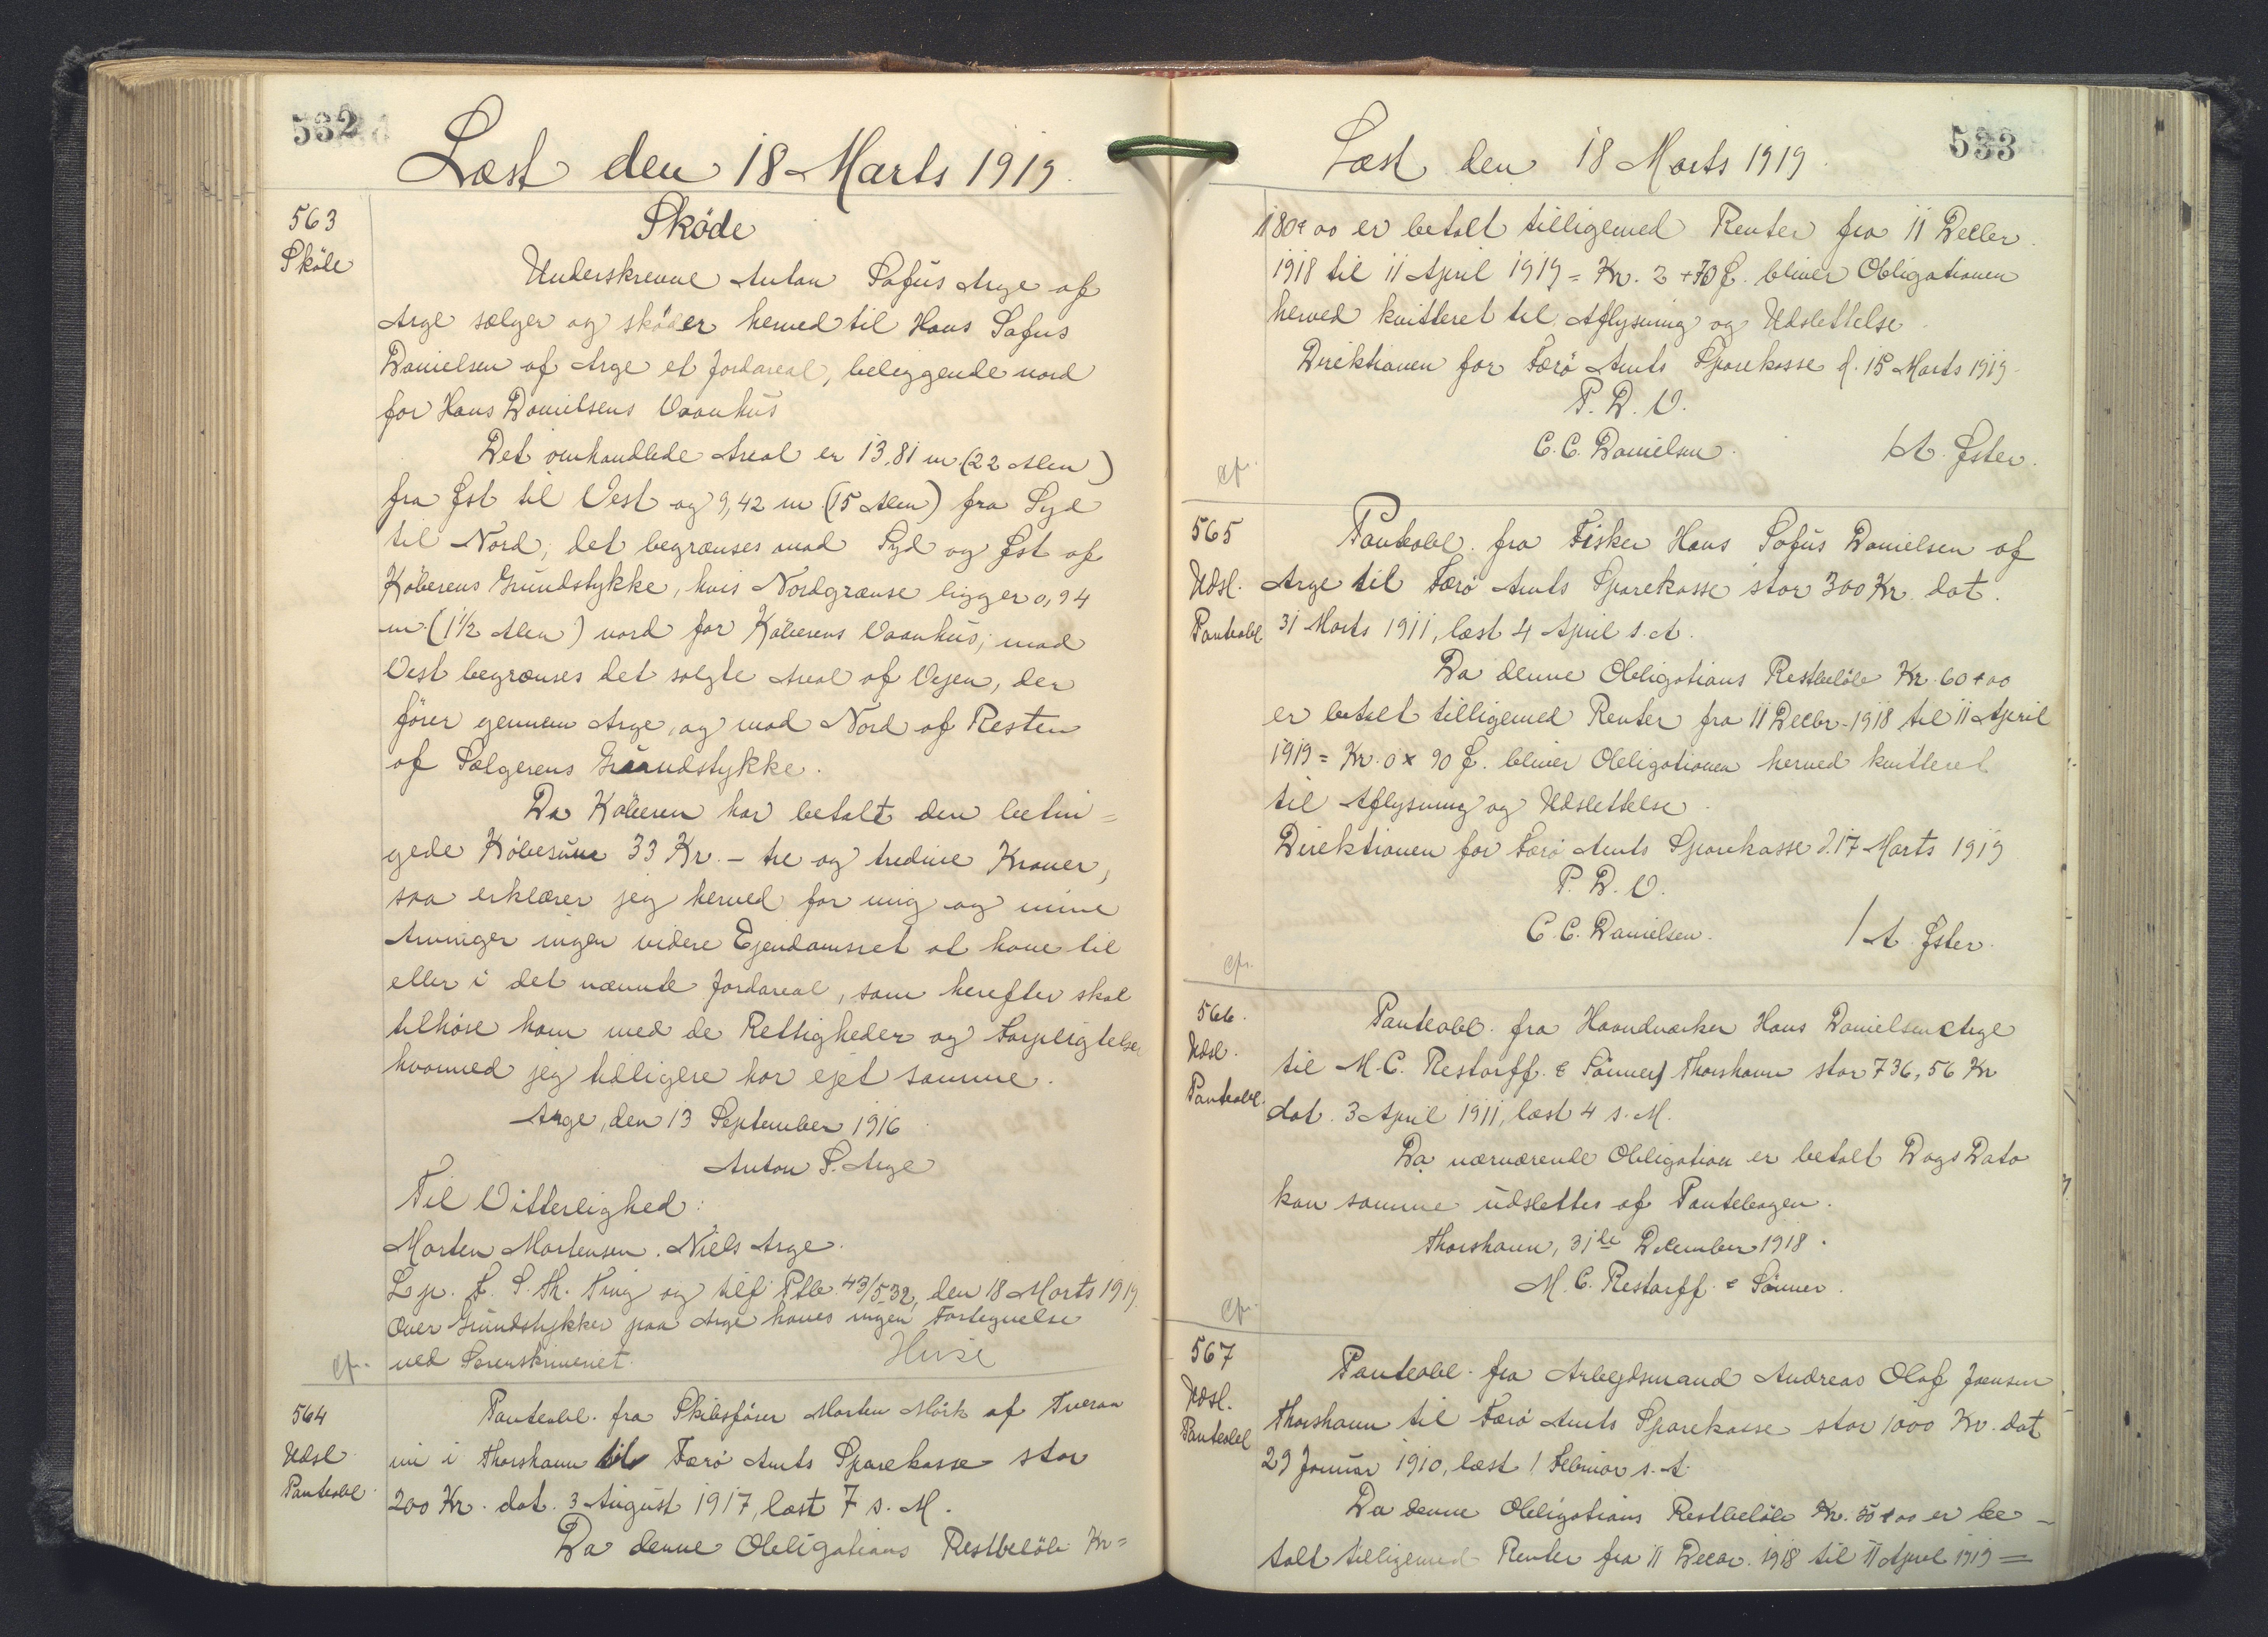 532
Læst den 18 Marts 1919.
563
Sköde
Sköde
Underskrevne Anton Sofus Arge af
Arge sælger og sköder herved til Hans Sofus
Danielsen af Arge et Jordareal, beliggende nord
for Hans Danielsens Vaanhus
Det omhandlede Areal er 13,81 m (22 Alen)
fra Øst til Vest og 9,42 m (15 Alen) fra Syd
til Nord; det begrænses mod Syd og Øst af
Köberens Grundstykke, hvis Nordgrænse ligger 0,94
m (1½ Alen) nord for Köberens Vaanhus; mod
Vest begrænses det solgte Areal af Vejen, der
förer gennem Arge, og mod Nord af Resten
af Sælgerens Grundstykke.
Da Köberen har betalt den betin=
gede Köbesum 33 Kr. - tre og tredive Kroner,
saa erklærer jeg herved for mig og mine
Arvinger ingen videre Ejendomsret at have til
eller i det nævnte Jordareal, som herefter skal
tilhöre ham med de Rettigheder og Forpligtelser
hvormed jeg tidligere har ejet samme.
Arge, den 13 September 1916
Anton S. Arge
Til Vitterlighed:
Morten Mortensen. Niels Arge.
L p. F. S. Th. Ting og tilf Ptb. 43/532, den 18 Marts 1919.
Over Grundstykker paa Arge haves ingen Fortegnelse
ved Sorenskriveriet.
cfr.
564
Udsl
Panteobl.
Panteobl. fra Skibsförer Morten Mörk af Tveraa
nu i Thorshavn til Færö Amts Sparekasse stor
200 Kr. dat. 3 August 1917, læst 7 s. M.
Da denne Obligations Restbelöb Kr=
533
Læst den 18 Marts 1919.
180 00 er betalt tilligemed Renter fra 11 Decbr.
1918 til 11 April 1919 = Kr. 2 + 70 Ø. bliver Obligationen
herved kvitteret til Aflysning og Udslettelse.
Direktionen for Færö Amts Sparekasse d. 15 Marts 1919.
P. D. V.
C. C. Danielsen. / A. Øster.
cfr.
565
Udsl.
Panteobl
Panteobl. fra Fisker Hans Sofus Danielsen af
Arge til Færö Amts Sparekasse stor 300 Kr. dat.
31 Marts 1911, læst 4 April s. A.
Da denne Obligations Restbelöb Kr. 60 + 00
er betalt tilligemed Renter fra 11 Decbr. 1918 til 11 April
1919 = Kr. 0 x 90 Ø. bliver Obligationen herved kvitteret
til Aflysning og Udslettelse.
Direktionen for Færö Amts Sparekasse d. 17 Marts 1919
P. D. V.
C. C. Danielsen. / A. Øster.
cfr.
566.
Udsl.
Panteobl.
Panteobl. fra Haandværker Hans Danielsen Arge
til M. C. Restorff & Sönner, Thorshavn stor 736,56 Kr
dat. 3 April 1911, læst 4 s. M.
Da nærværende Obligation er betalt Dags Dato
kan samme udslettes af Pantebogen.
Thorshavn, 31te December 1918.
M. C. Restorff & Sönner.
cfr.
567
Udsl.
Panteobl
Panteobl. fra Arbejdsmand Andreas Olaf Joensen
Thorshavn til Færö Amts Sparekasse stor 1000 Kr. dat
29 Januar 1910, læst 1 Februar s. A.
Da denne Obligations Restbelöb Kr. 50 + 00 er be-
talt tilligemed Renter fra 11 Decbr. 1918 til 11 April 1919 =